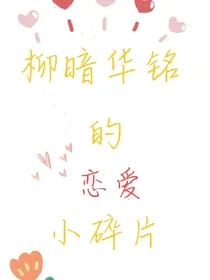 柳暗华铭
的
恋爱
小碎片